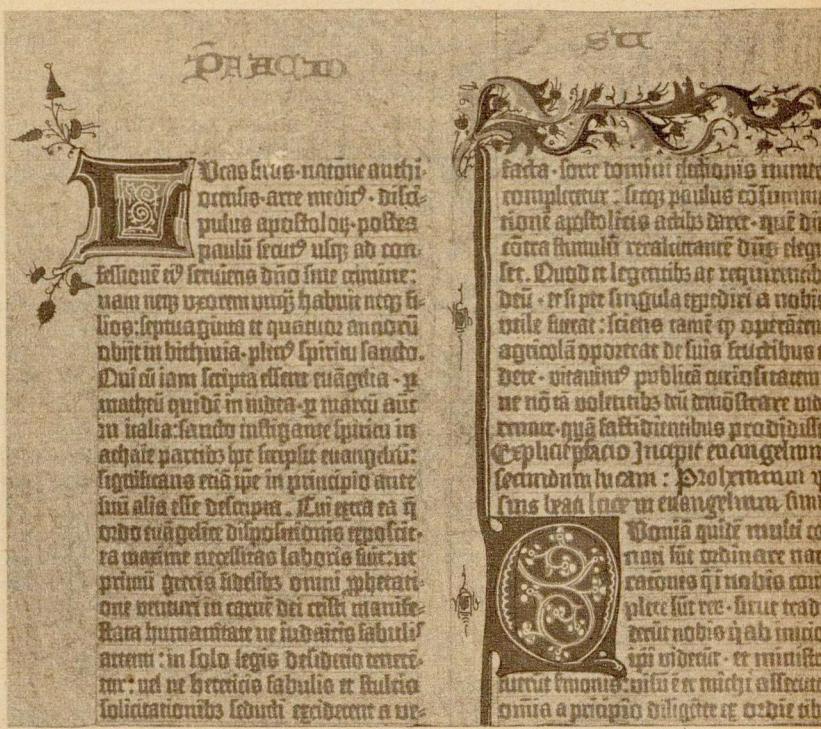 P̄FACIO
SU
Lucas sirus·natōne anthi-
ocensis·arte medicꝰ·disci-
pulus apostoloꝝ·postea
paulū secutꝰ usqꝫ ad con-
fessionē eiꝰ serviens dn̄o sine crimine:
nam neqꝫ uxorem unq̄ habuit neqꝫ fi-
lios:septuaginta et quatuor annorū
obijt in bithinia·plenꝰ spiritu sancto.
Qui cū iam scripta essent evāgelia·ꝑ
matheū quidē in iudea·ꝑ marcū aūt
in italia:sancto instigante spiritu in
achaie partibꝫ hoc scripsit evangeliū:
significans etiā ip̄e in principio ante
suū alia esse descripta. Cui extra ea q̄
ordo evāgelice dispositionis exposcit-
ea maxime necessitas laboris fuit:ut
primū grecis fidelibꝫ omni ꝓphetati-
one venturi in carnē dei cristi manife-
stata humanitate ne iudaicis fabulis
attenti:in solo legis desiderio tenerē-
tur:vel ne hereticis fabulis et stultis
solicitationibꝫ seducti exciderent a ve-
facta·forte domini electionis nume
compleretur:sicqꝫ paulus cōsumma
tionē apostolicis actibꝫ daret·quē diu
cōtra stimulū recalcitrantē dn̄s eleg
set. Quod et legentibꝫ ac requirentib
deū·etsi per singula expediri a nobis
utile fuerat:sciens tamē ꝙ operātem
agricolā oporteat de suis fructibus e
dere·vitavimꝰ publicā curiositatem
ne nō tā volentibꝫ deū demōstrare vid
remur·quā fastidientibus prodidiss
Explicit p̄facio Incipit evangelium
secundum lucam: Prohemium
ipsius beati luce in evangelium suum
Quoniā quidē multi co
nati sūt ordinare nar
rationes q̄ in nobis com
plete sūt rex·sicut trad
derūt nobis q̄ ab inicio
ip̄i viderūt·et ministr
fuerūt sermonis:visū ē et michi assecuto
omīa a pricipio diligēter ex ordīe tib